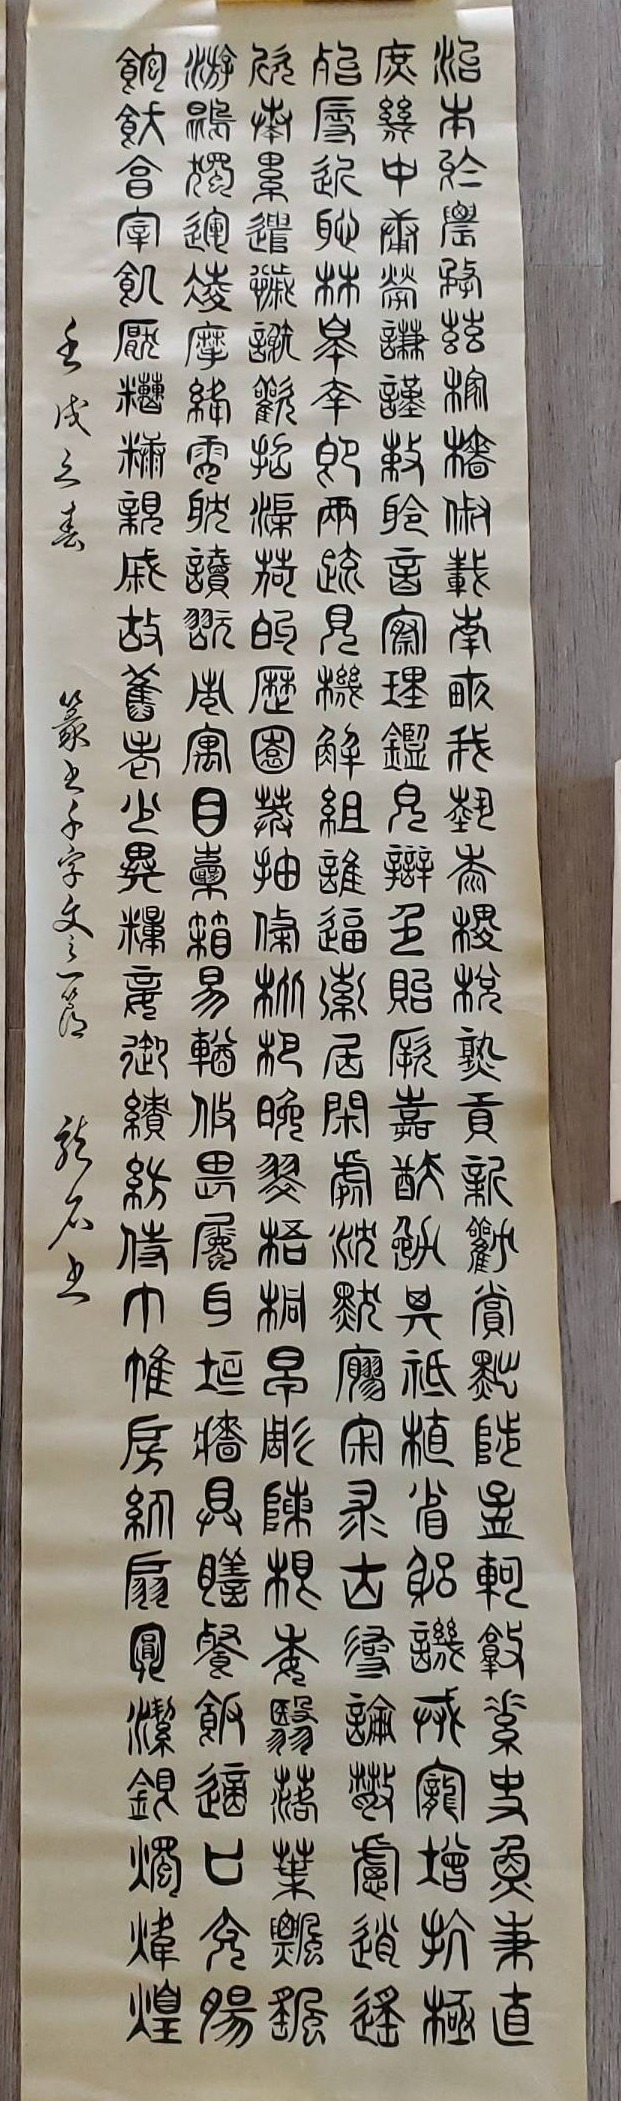 治本於農務茲稼穡俶載南畝我藝黍稷稅熟貢新勸賞黜陟孟軻敦素史魚秉直
庶幾中庸勞謙謹敕聆音察理鑑皃辯色貽厥嘉猷勉其祗植省躬譏誡寵增抗極
殆辱近恥林皋幸即兩疏見機解組誰逼索居閑處沈默寥寂求古尋論散慮逍遙
欣奏累遣慼謝歡招渠荷的歷園莽抽條枇杷晚翠梧桐早彫陳根委翳落葉飄颻
游鵾獨運凌摩絳霄耽讀翫市寓目囊箱易輶攸畏屬耳垣牆具膳餐飯適口充腸
飽飫亯宰飢厭糟糠親戚故舊老少異糧妾御績紡侍巾帷房紈扇圓潔銀燭煒煌
壬戌之春 篆書千字文之一節 龍石書